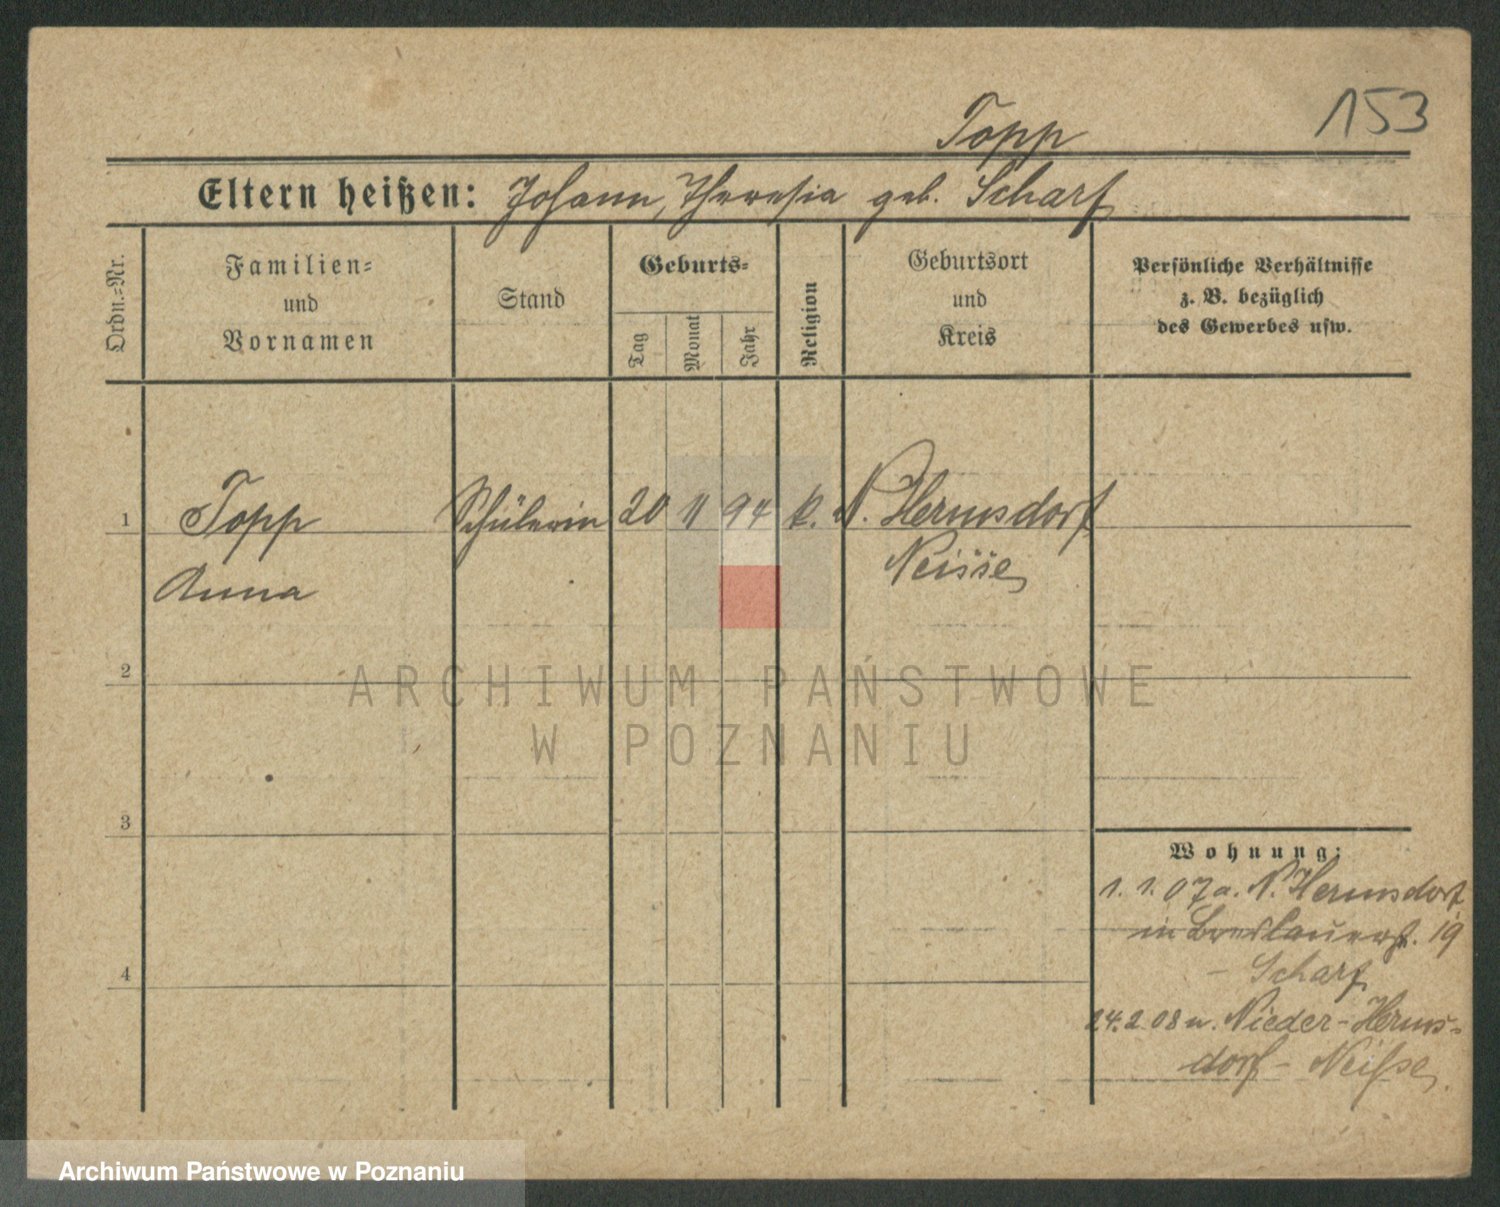 153
Topp
Eltern heißen: Johann, Theresia geb. Scharf
Ordn.=Nr.
Familien=
und
Vornamen
Stand
Geburts=
Tag
Monat
Jahr
Religion
Geburtsort
und
Kreis
Persönliche Verhältnisse
z. B. bezüglich
des Gewerbes usw.
1 Topp Schülerin 20 11 94 k. N. Hermsdorf
Anna Neisse
2
3
4
Wohnung:
1. 1. 07 a. N. Hermsdorf
in Breslauerst. 19
- Scharf
24. 2. 08 n. Nieder-Herms-
dorf - Neisse.
ARCHIWUM PAŃSTWOWE
W POZNANIU
Archiwum Państwowe w Poznaniu